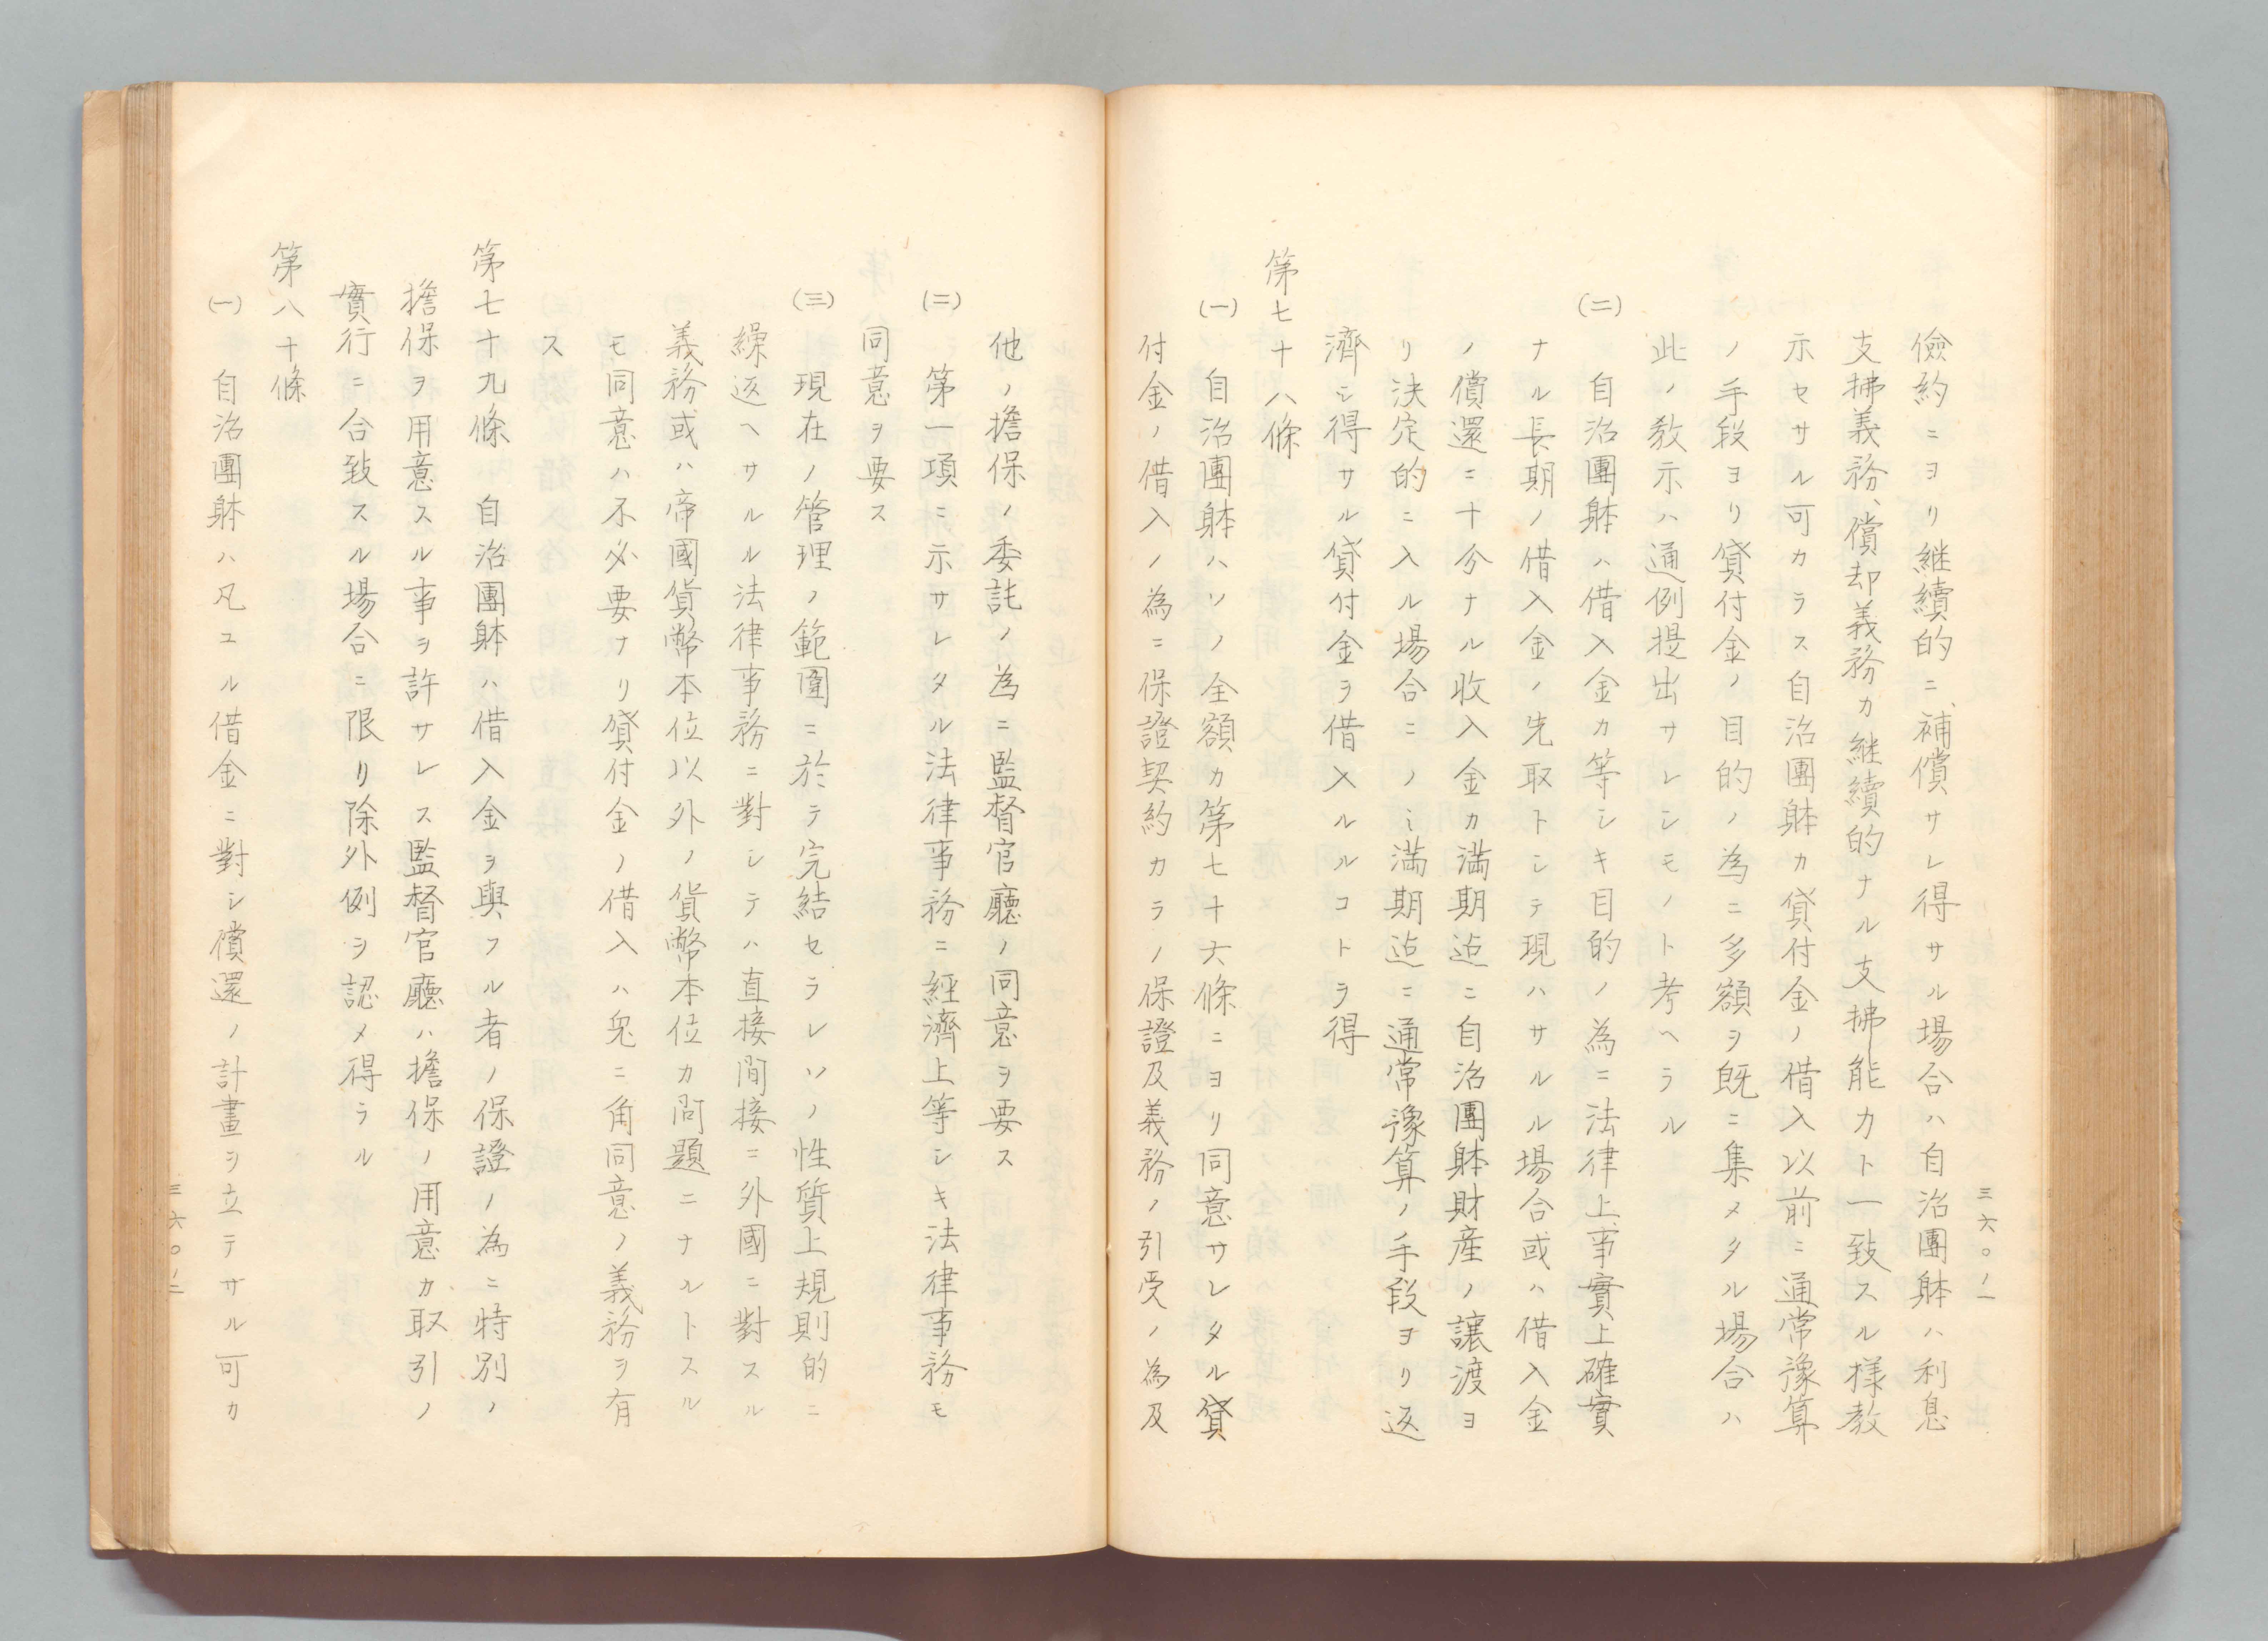 三六〇ノ一
儉約ニヨリ継續的ニ、補償サレ得サル場合ハ自治團躰ハ利息
支拂義務、償却義務カ継續的ナル支拂能カト一致スル様教
示セサル可カラス自治團躰カ貸付金ノ借入以前ニ通常豫算
ノ手段ヨリ貸付金ノ目的ノ為ニ多額ヲ既ニ集メタル場合ハ
此ノ教示ハ通例提出サレシモノト考ヘラル
(二) 自治團躰ハ借入金カ等シキ目的ノ為ニ法律上事實上確實
ナル長期ノ借入金ノ先取トシテ現ハサルル場合或ハ借入金
ノ償還ニ十分ナル收入金カ満期迠ニ自治團躰財産ノ讓渡ヨ
リ決定的ニ入ル場合ニノミ満期迠ニ通常豫算ノ手段ヨリ返
濟シ得サル貸付金ヲ借入ルルコトヲ得
第七十八條
(一) 自治團躰ハソノ全額カ第七十六條ニヨリ同意サレタル貸
付金ノ借入ノ為ニ保證契約カラノ保證及義務ノ引受ノ為及
他ノ擔保ノ委託ノ為ニ監督官廳ノ同意ヲ要ス
(二) 第一項ニ示サレタル法律事務ニ經濟上等シキ法律事務モ
同意ヲ要ス
(三) 現在ノ管理ノ範圍ニ於テ完結セラレソノ性質上規則的ニ
繰返ヘサルル法律事務ニ對シテハ直接間接ニ外國ニ對スル
義務或ハ帝國貨幣本位以外ノ貨幣本位カ問題ニナルトスル
モ同意ハ不必要ナリ貸付金ノ借入ハ兎ニ角同意ノ義務ヲ有
ス
第七十九條 自治團躰ハ借入金ヲ與フル者ノ保證ノ為ニ特別ノ
擔保ヲ用意スル事ヲ許サレス監督官廳ハ擔保ノ用意カ取引ノ
實行ニ合致スル場合ニ限リ除外例ヲ認メ得ラル
第八十條
(一) 自治團躰ハ凡ユル借金ニ對シ償還ノ計畫ヲ立テザル可カ
三六〇ノ二